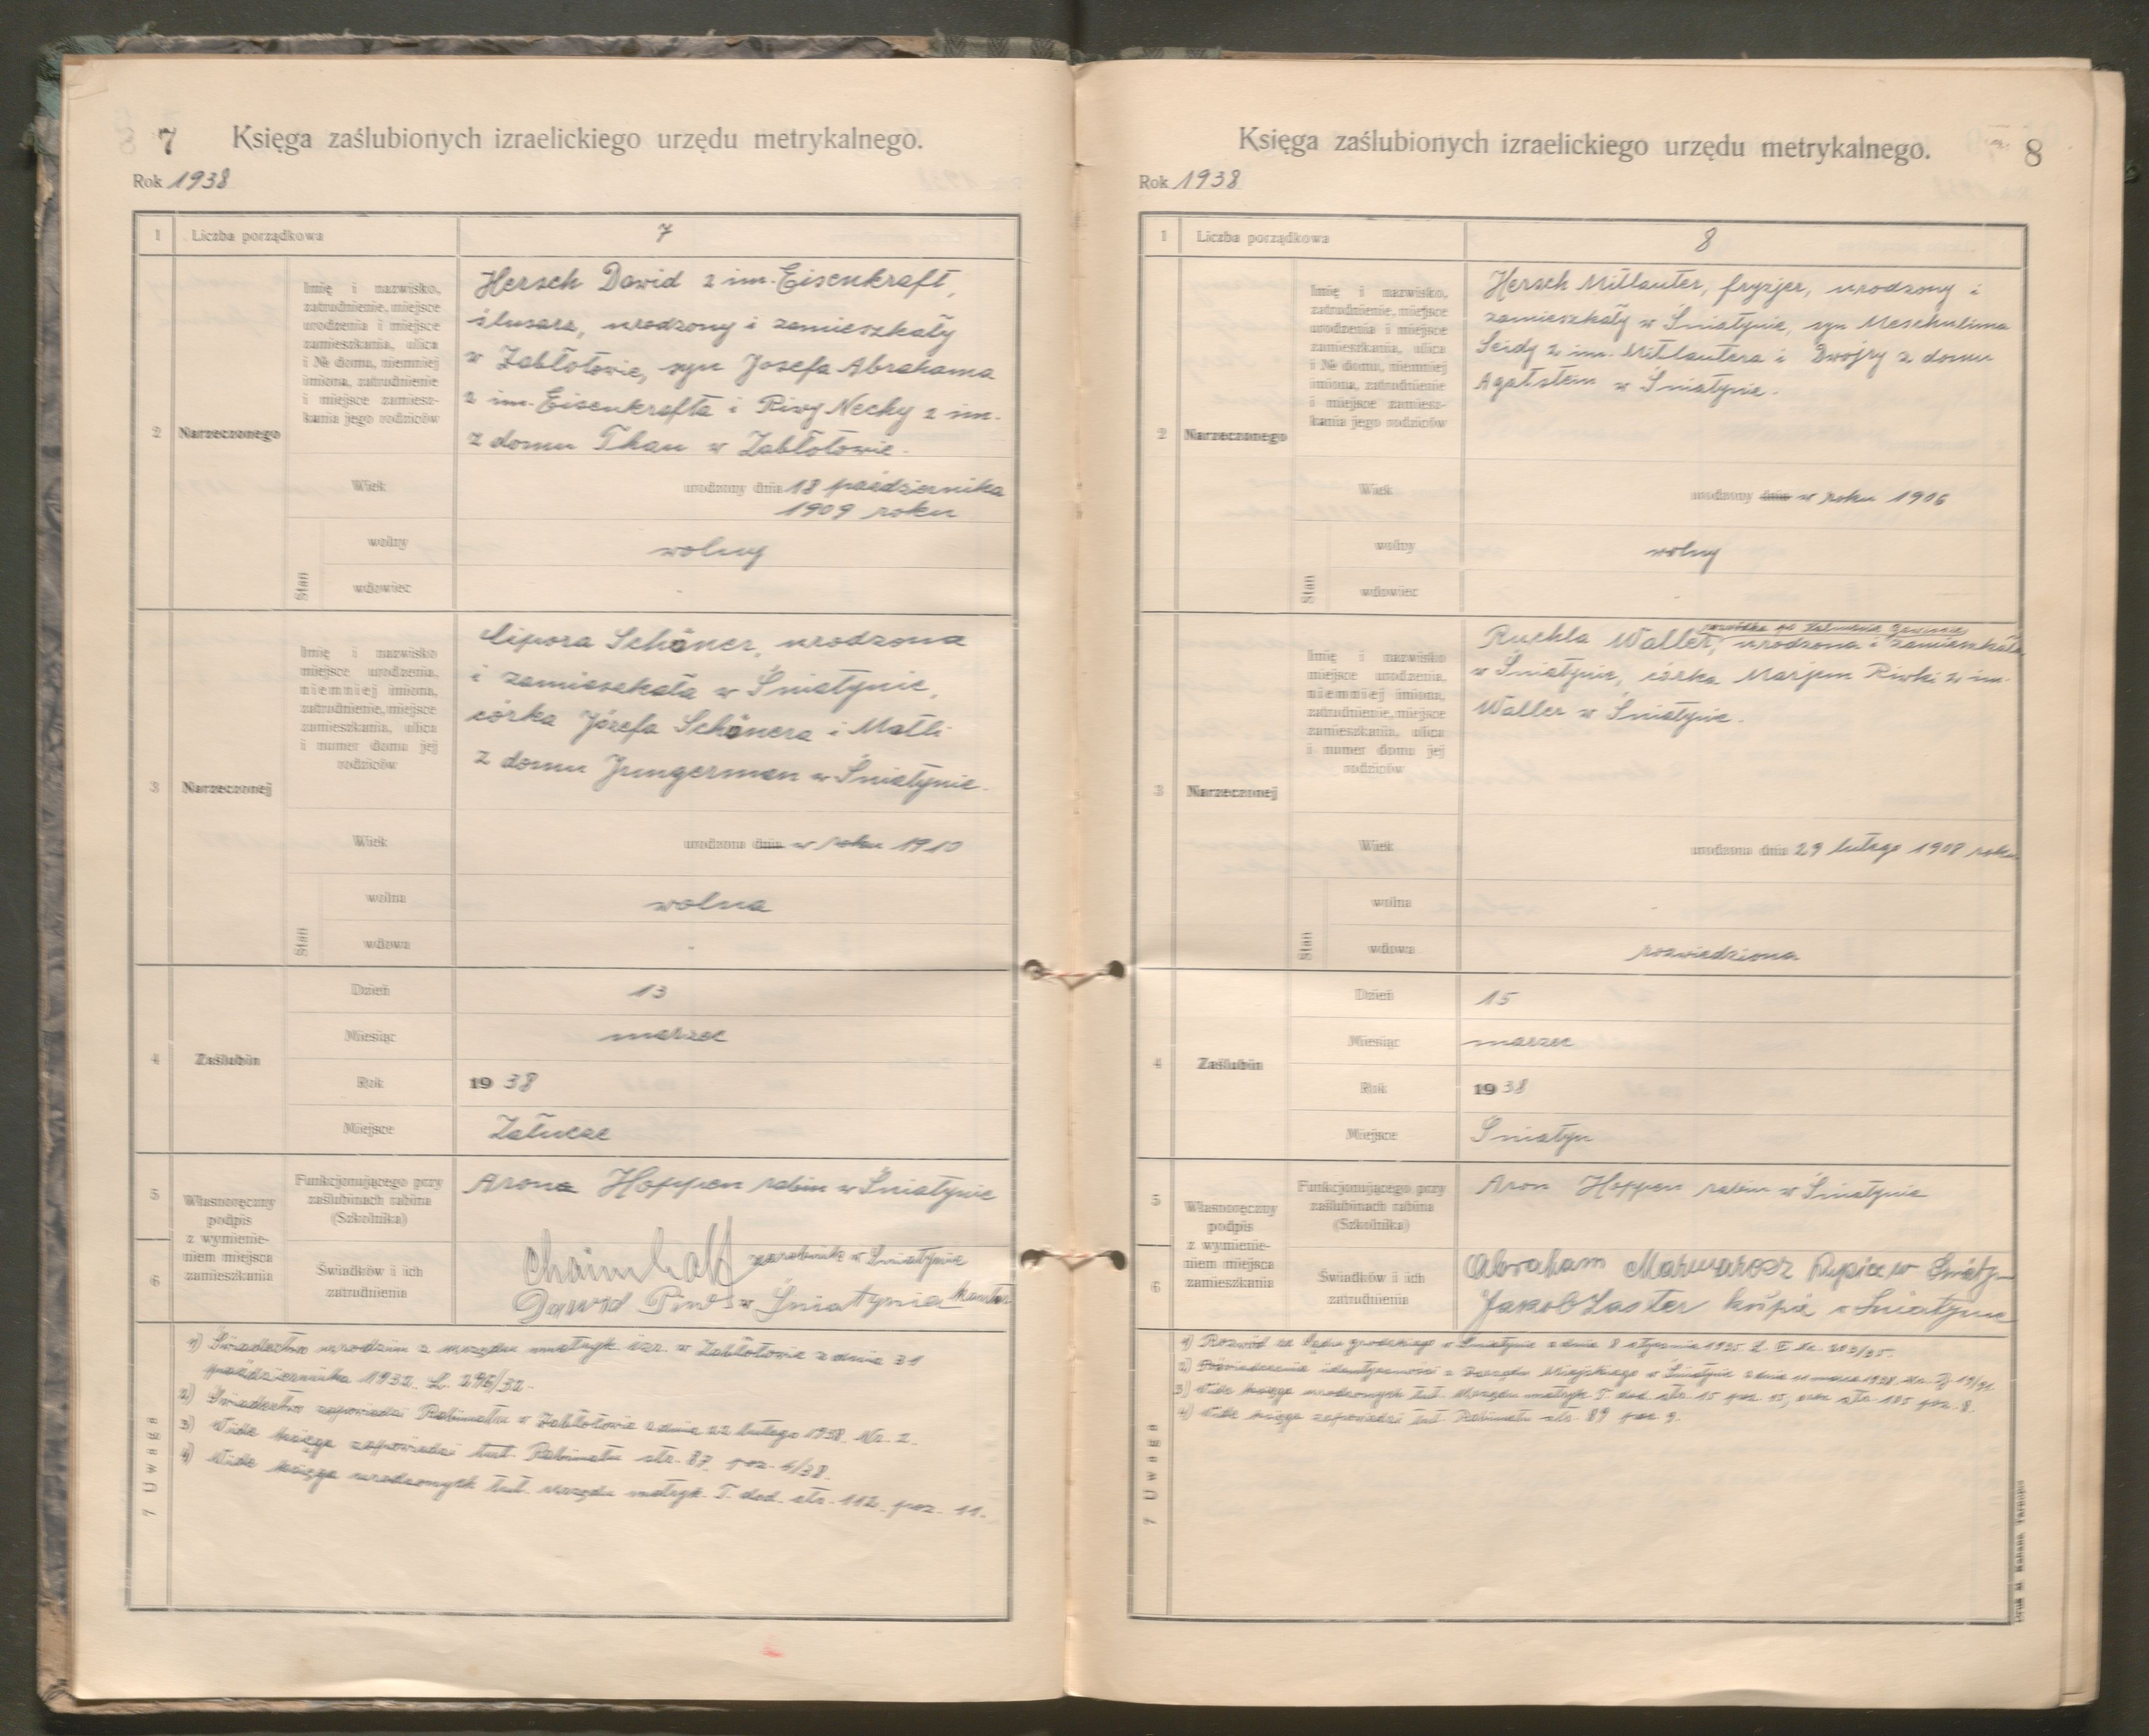 7 Księga zaślubionych izraelickiego urzędu metrykalnego.
Rok 1938
1 Liczba porządkowa 7
2 Narzeczonego
Imię i nazwisko,
zatrudnienie, miejsce
urodzenia i miejsce
zamieszkania, ulica
i № domu, niemniej
imiona, zatrudnienie
i miejsce zamiesz-
kania jego rodziców
Hersch Dawid 2 im. Eisenkraft,
ślusarz, urodzony i zamieszkały
w Zabłotowie, syn Josefa Abrahama
2 im. Eisenkrafta i Riwy Nechy 2 im.
z domu Thau w Zabłotowie.
Wiek urodzony dnia 18 października
1909 roku
Stan
wolny wolny
wdowiec
3 Narzeczonej
Imię i nazwisko
miejsce urodzenia,
niemniej imiona,
zatrudnienie, miejsce
zamieszkania, ulica
i numer domu jej
rodziców
Cipora Schöner, urodzona
i zamieszkała w Śniatynie,
córka Józefa Schönera i Matli
z domu Jungerman w Śniatynie.
Wiek urodzona dnia w roku 1910
Stan
wolna wolna
wdowa -
4 Zaślubin
Dzień 13
Miesiąc marzec
Rok 1938
Miejsce Załucze
5 Własnoręczny
podpis
z wymienie-
niem miejsca
zamieszkania
Funkcjonującego przy
zaślubinach rabina
(Szkolnika)
Aron Hoppen rabin w Śniatynie
6 Świadków i ich
zatrudnienia
Chaim w Śniatynie
Dawid w Śniatynie
7 Uwaga
1) Świadectwo urodzin z urzędu metryk. izr. w Zabłotowie z dnia 31
października 1932. L. 296/32.
2) Świadectwo zapowiedzi Rabinatu w Zabłotowie z dnia 22 lutego 1938. Nr. 2.
3) Vide księga zapowiedzi tut. Rabinatu str. 87. poz. 6/38.
4) Vide księga urodzonych tut. urzędu metryk. T. dod. str. 112. poz. 11.
Księga zaślubionych izraelickiego urzędu metrykalnego. 8
Rok 1938
1 Liczba porządkowa 8
2 Narzeczonego
Imię i nazwisko,
zatrudnienie, miejsce
urodzenia i miejsce
zamieszkania, ulica
i № domu, niemniej
imiona, zatrudnienie
i miejsce zamiesz-
kania jego rodziców
Hersch Mitlauter, fryzjer, urodzony i
zamieszkały w Śniatynie, syn Meschulima
Seidy 2 im. Mitlautera i Dwojry z domu
Agatstein w Śniatynie.
Wiek urodzony dnia w roku 1906
Stan
wolny wolny
wdowiec
3 Narzeczonej
Imię i nazwisko
miejsce urodzenia,
niemniej imiona,
zatrudnienie, miejsce
zamieszkania, ulica
i numer domu jej
rodziców
Ruchla Waller, urodzona i zamieszkała
w Śniatynie, córka Marjem Riwki 2 im.
Waller w Śniatynie.
Wiek urodzona dnia 29 lutego 1908 roku
Stan
wolna
wdowa rozwiedziona
4 Zaślubin
Dzień 15
Miesiąc marzec
Rok 1938
Miejsce Śniatyn
5 Własnoręczny
podpis
z wymienie-
niem miejsca
zamieszkania
Funkcjonującego przy
zaślubinach rabina
(Szkolnika)
Aron Hoppen rabin w Śniatynie
6 Świadków i ich
zatrudnienia
Abraham Marmarosz w
Jakob Laster w Śniatynie
7 Uwaga
1) Rozwód ze Sądu grodzkiego w Śniatynie z dnia 8 stycznia 1935.
2) Poświadczenie identyczności z Zarządu Miejskiego w Śniatynie z dnia 11 marca 1938.
3) Vide księga urodzonych tut. Urzędu metryk. T. dod. str. 15 poz. 15, str. 185 poz. 8.
4) Vide księga zapowiedzi tut. Rabinatu str. 89 poz 9.